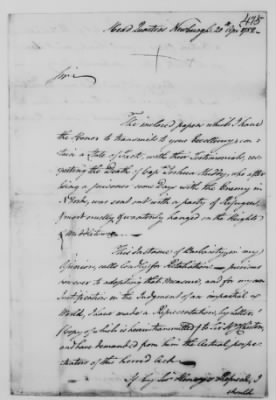 475
Head Quarters Newburgh 20th Apr 1782
Sir
The inclosed papers which I have
the Honor to transmit to your Excellency, con-
tain a State of Facts, with their Testimonials, res-
pecting the Death of Capt Joshua Huddy, who after
being a prisoner some Days with the Enemy in
N York, was sent out with a party of Refugees
& most cruelly & wantonly hanged on the Heights
of Middletown
This Instance of Barbarity, in my
Opinion, calls loudly for Retaliation
previous
however to adopting that Measure, and for my own
Justification in the Judgment of an impartial
World, I have made a Representation, by Letter
(Copy of which is herein transmitted) to Sir H Clinton
and have demanded from him the Actual perpe-
trators of this horrid Act.
If by Sir Henry's Refusal, I
should